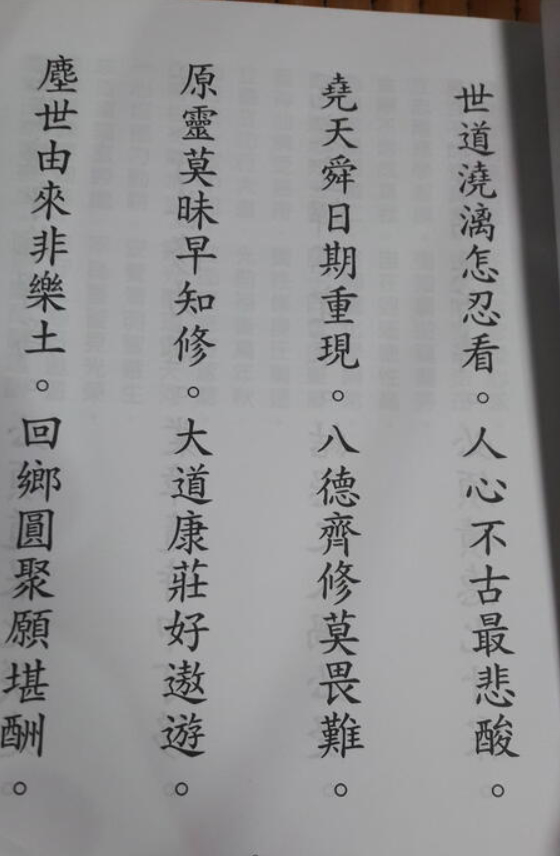 世道澆漓怎忍看。人心不古最悲酸。
堯天舜日期重現。八德齊修莫畏難。
原靈莫昧早知修。大道康莊好遨遊。
塵世由來非樂土。回鄉圓聚願堪酬。